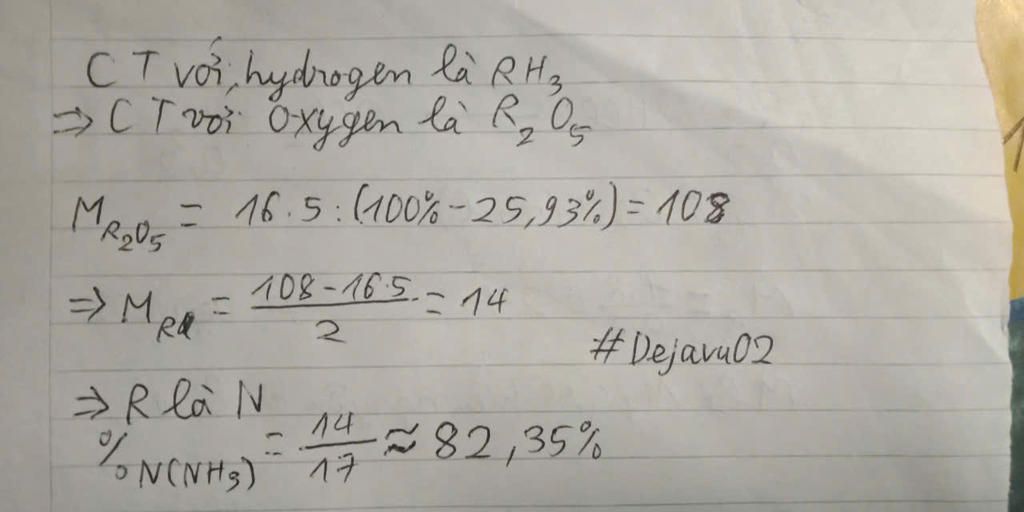 CT với hydrogen là RH₃
⇒ CT với Oxygen là R₂O₅
M_R₂O₅ = 16.5:(100%-25,93%)=108
⇒ M_R = (108-16.5)/2 = 14
#Dejavu02
⇒ R là N
%N(NH₃) = 14/17 ≈ 82,35%